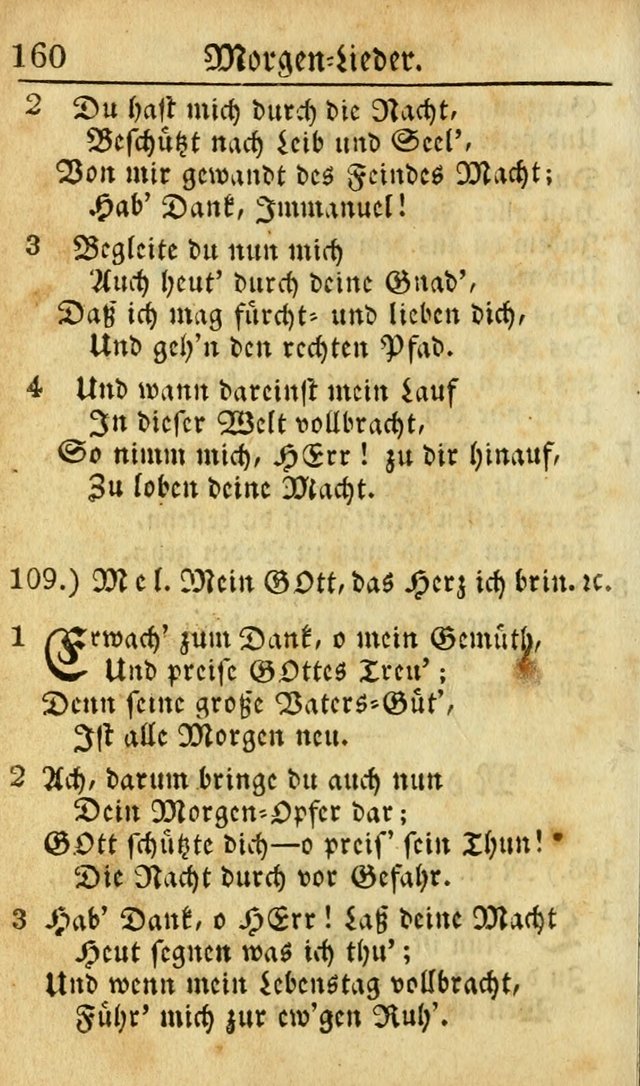 160 Morgen=Lieder.
2 Du hast mich durch die Nacht,
Beschützt nach Leib und Seel’,
Von mir gewandt des Feindes Macht;
Hab’ Dank, Immanuel!
3 Begleite du nun mich
Auch heut’ durch deine Gnad’,
Daß ich mag fürcht= und lieben dich,
Und geh’n den rechten Pfad.
4 Und wann dareinst mein Lauf
In dieser Welt vollbracht,
So nimm mich, HErr! zu dir hinauf,
Zu loben deine Macht.
109.) Mel. Mein GOtt, das Herz ich brin. ꝛc.
1 Erwach’ zum Dank, o mein Gemüth,
Und preise GOttes Treu’;
Denn seine große Vaters=Güt’,
Ist alle Morgen neu.
2 Ach, darum bringe du auch nun
Dein Morgen=Opfer dar;
GOtt schützte dich—o preis’ sein Thun!
Die Nacht durch vor Gefahr.
3 Hab’ Dank, o HErr! Laß deine Macht
Heut segnen was ich thu’;
Und wenn mein Lebenstag vollbracht,
Führ’ mich zur ew’gen Ruh’.